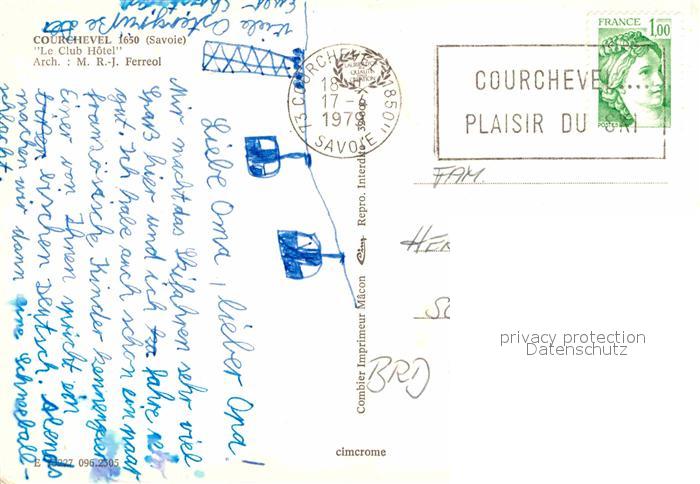 COURCHEVEL 1650 (Savoie)
"Le Club Hôtel"
Arch. : M. R.-J. Ferreol
Liebe Oma, lieber Opa!
Mir macht das Skifahren sehr viel
Spaß hier und ich fahre sehr
gut. Ich habe auch schon ein paar
französische Kinder kennengelernt
Einer von Ihnen spricht ein
bisschen Deutsch. Abends
machen wir dann eine Schneeball-
schlacht.
Viele Ostergrüße
Euer
E 73227 096.2505
Combier Imprimeur Mâcon Cim Repro. Interdite
cimcrome
73 COURCHEVEL 85011
18 H
17 -
1979
SAVOIE
COURCHEVEL...
PLAISIR DU SKI
FRANCE 1,00
POSTES
FAM.
HER
SC
BRD
privacy protection
Datenschutz